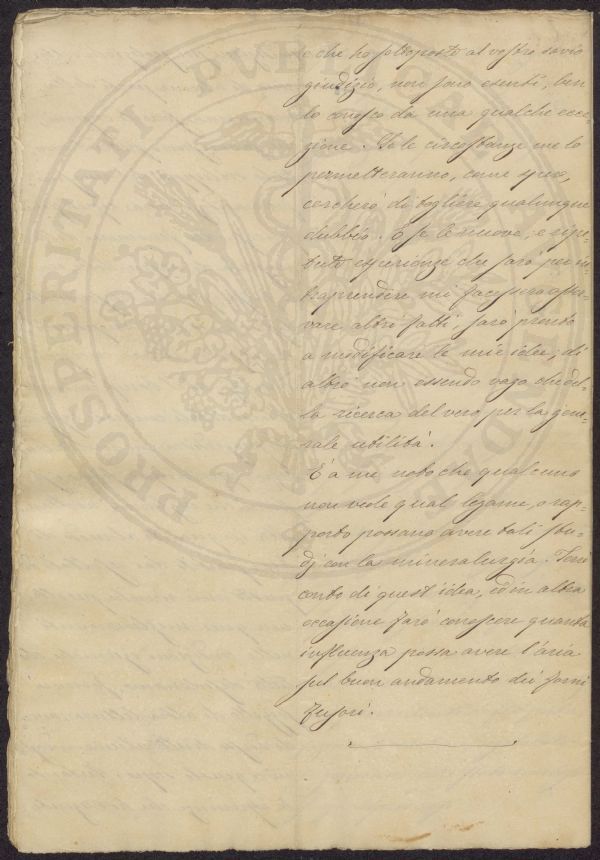 e che ho sottoposto al vostro savio
giudizio, non sono esenti, ben
lo conosco da una qualche ecce-
zione. Se le circostanze me lo
permetteranno, come spero,
cercherò di togliere qualunque
dubbio. E se le nuove, e ripe-
tute esperienze che sarò per in-
traprendere mi facessero osser-
vare altri fatti, sarò pronto
a modificare le mie idee, di
altro non essendo vago che del-
la ricerca del vero per la gene-
rale utilità.
È a me noto che qualcuno
non vede qual legame, o rap-
porto possano avere tali stu-
dj con la mineralurgia. Terrò
conto di quest'idea, ed in altra
occasione farò conoscere quanta
influenza possa avere l'aria
sul buon andamento dei forni
fusori.
PROSPERITATI PUBLICAE